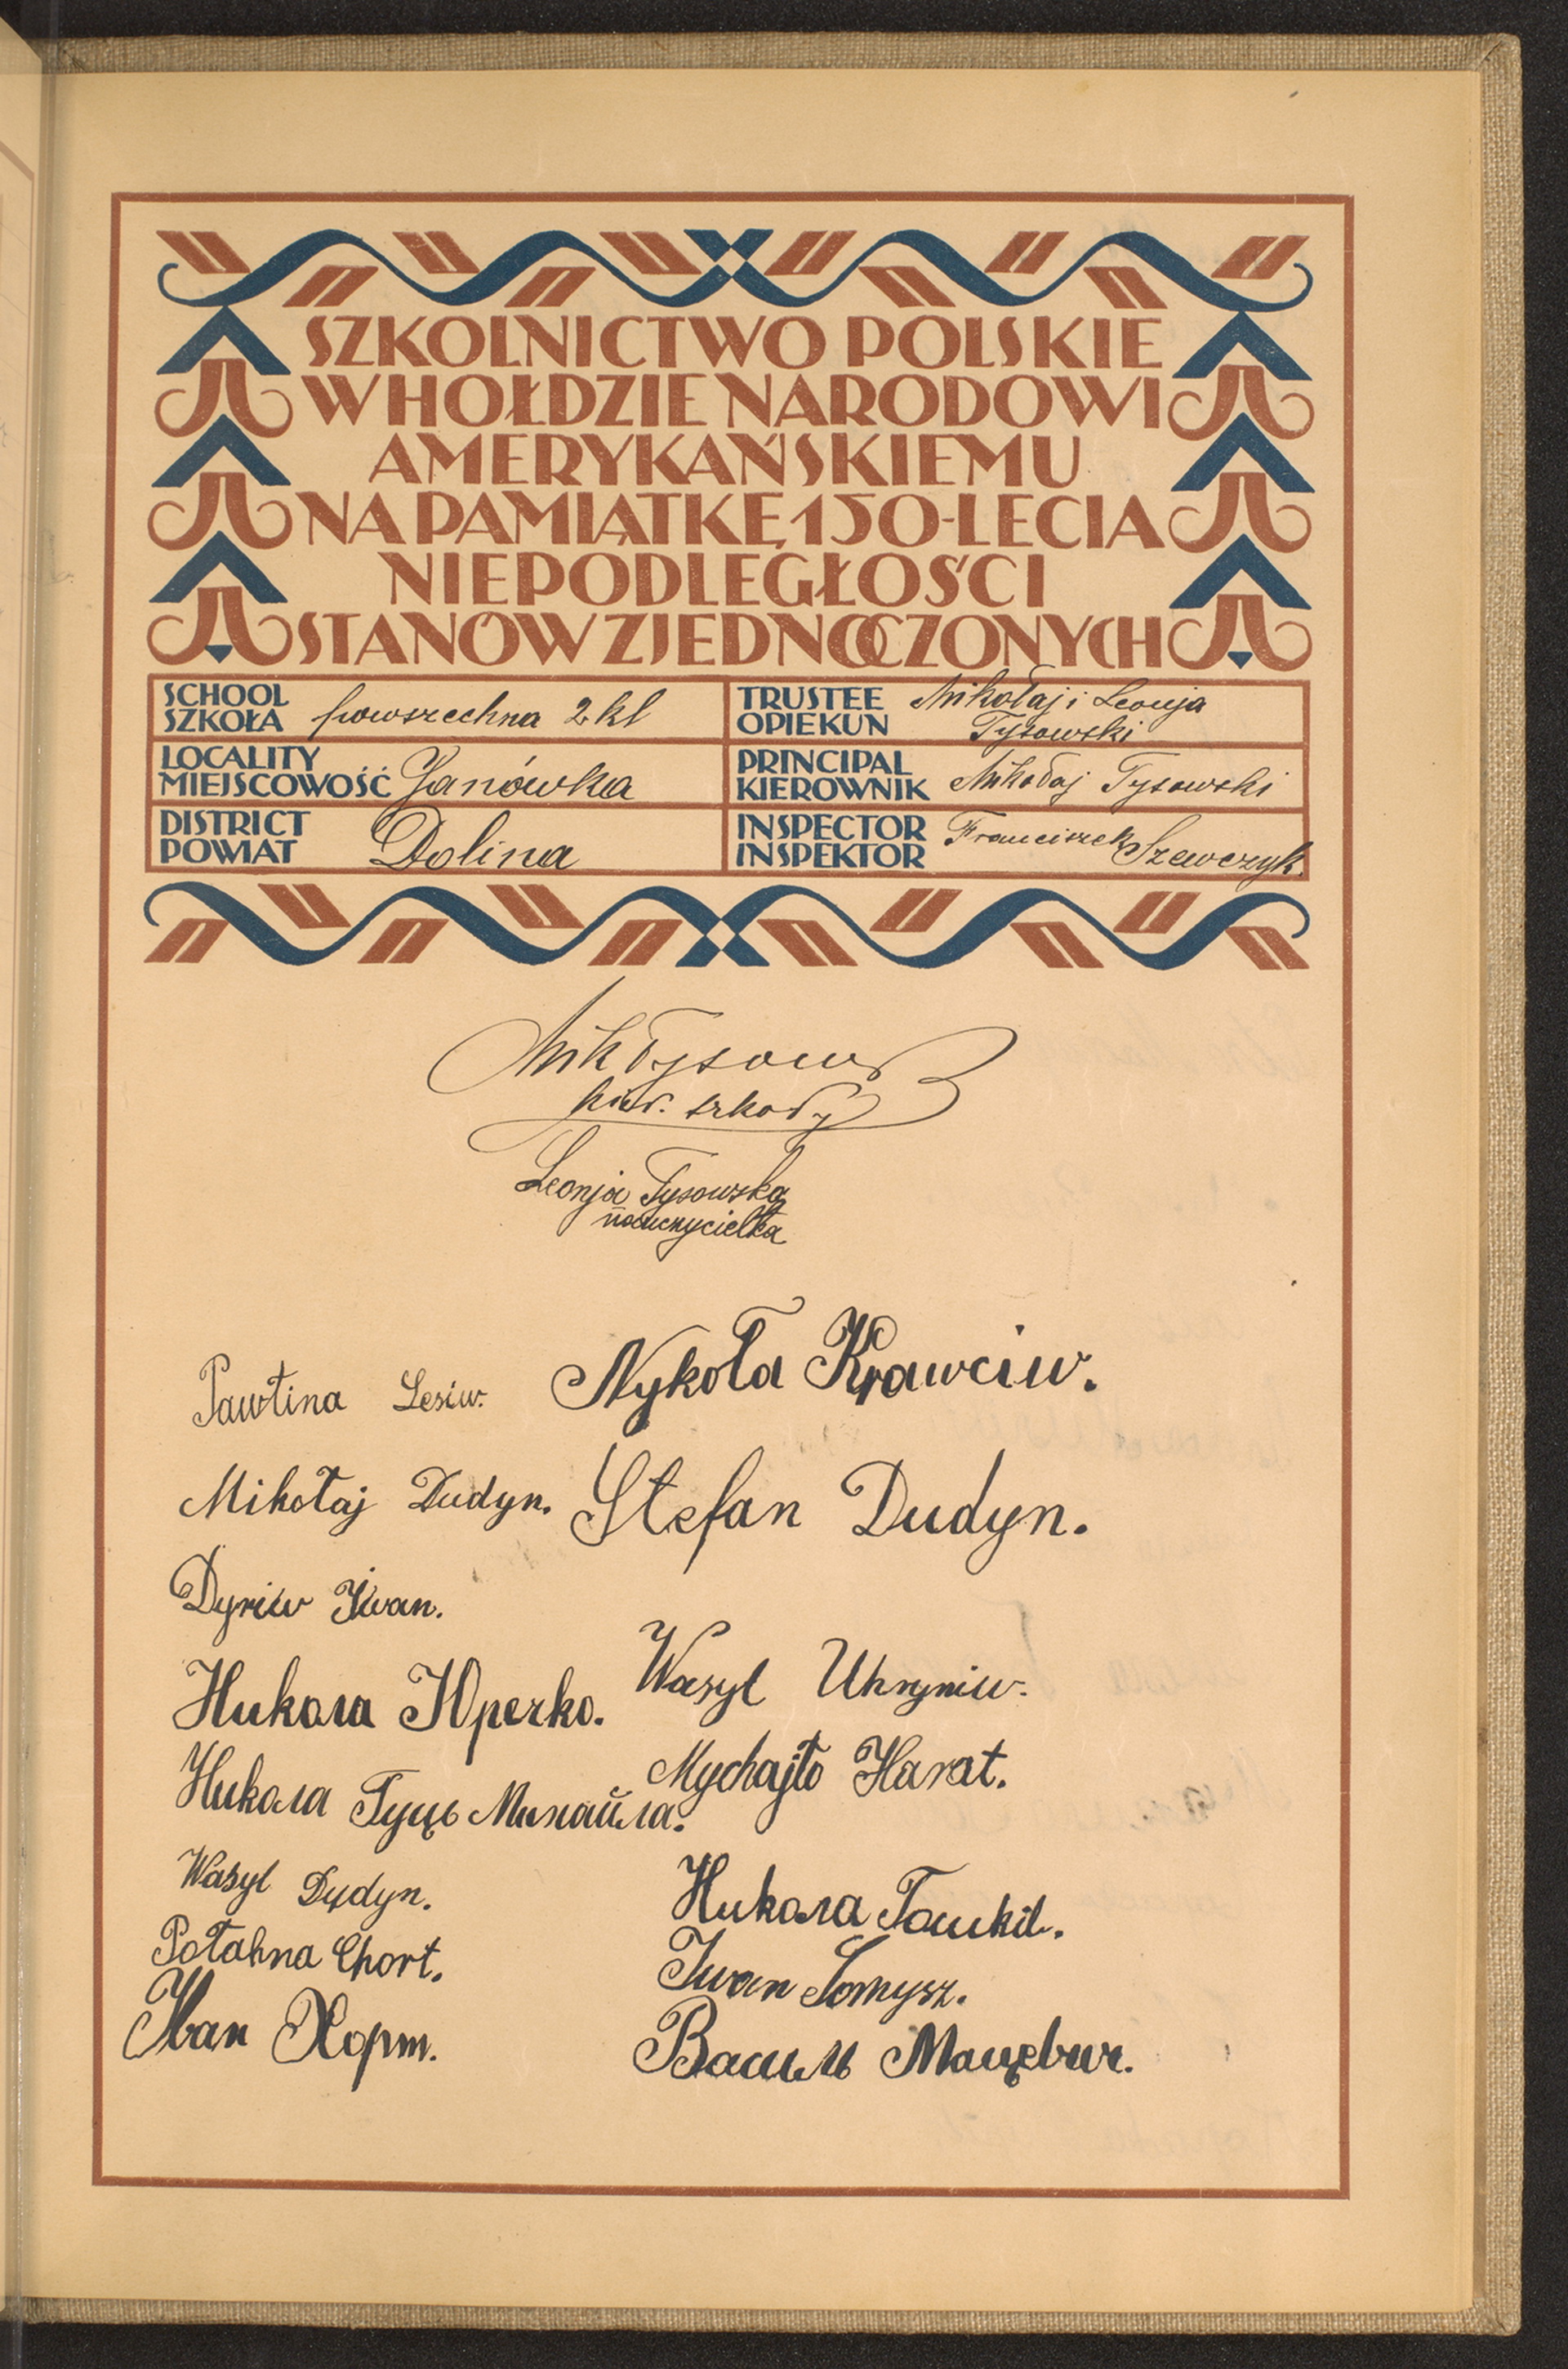 SZKOLNICTWO POLSKIE
W HOŁDZIE NARODOWI
AMERYKAŃSKIEMU
NA PAMIĄTKĘ 150-LECIA
NIEPODLEGŁOŚCI
STANÓW ZJEDNOCZONYCH
SCHOOL
SZKOŁA powszechna 2 kl
TRUSTEE
OPIEKUN Mikołaj i Leonja
Tysowski
LOCALITY
MIEJSCOWOŚĆ Janówka
PRINCIPAL
KIEROWNIK Mikołaj Tysowski
DISTRICT
POWIAT Dolina
INSPECTOR
INSPEKTOR Franciszek Szewczyk.
Mik Tysows
kier. szkoły
Leonja Tysowska
nauczycielka
Pawłina Lesiw.
Nykoła Krawciw.
Mikołaj Dudyn.
Stefan Dudyn.
Dyriw Iwan.
Wasyl Uhryniw.
Никола Юречко.
Mychajło Harat.
Никола Гуць Михайла.
Wasyl Dudyn.
Никола Гошків.
Połahna Chort.
Iwan Somysz.
Іван Хорт.
Василь Мацевич.